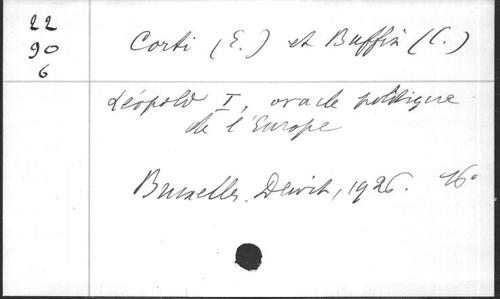 22
90
6
Corti (E.) et Buffin (C.)
Léopold I, oracle politique
de l'Europe
Bruxelles, Dewit, 1926. 16°